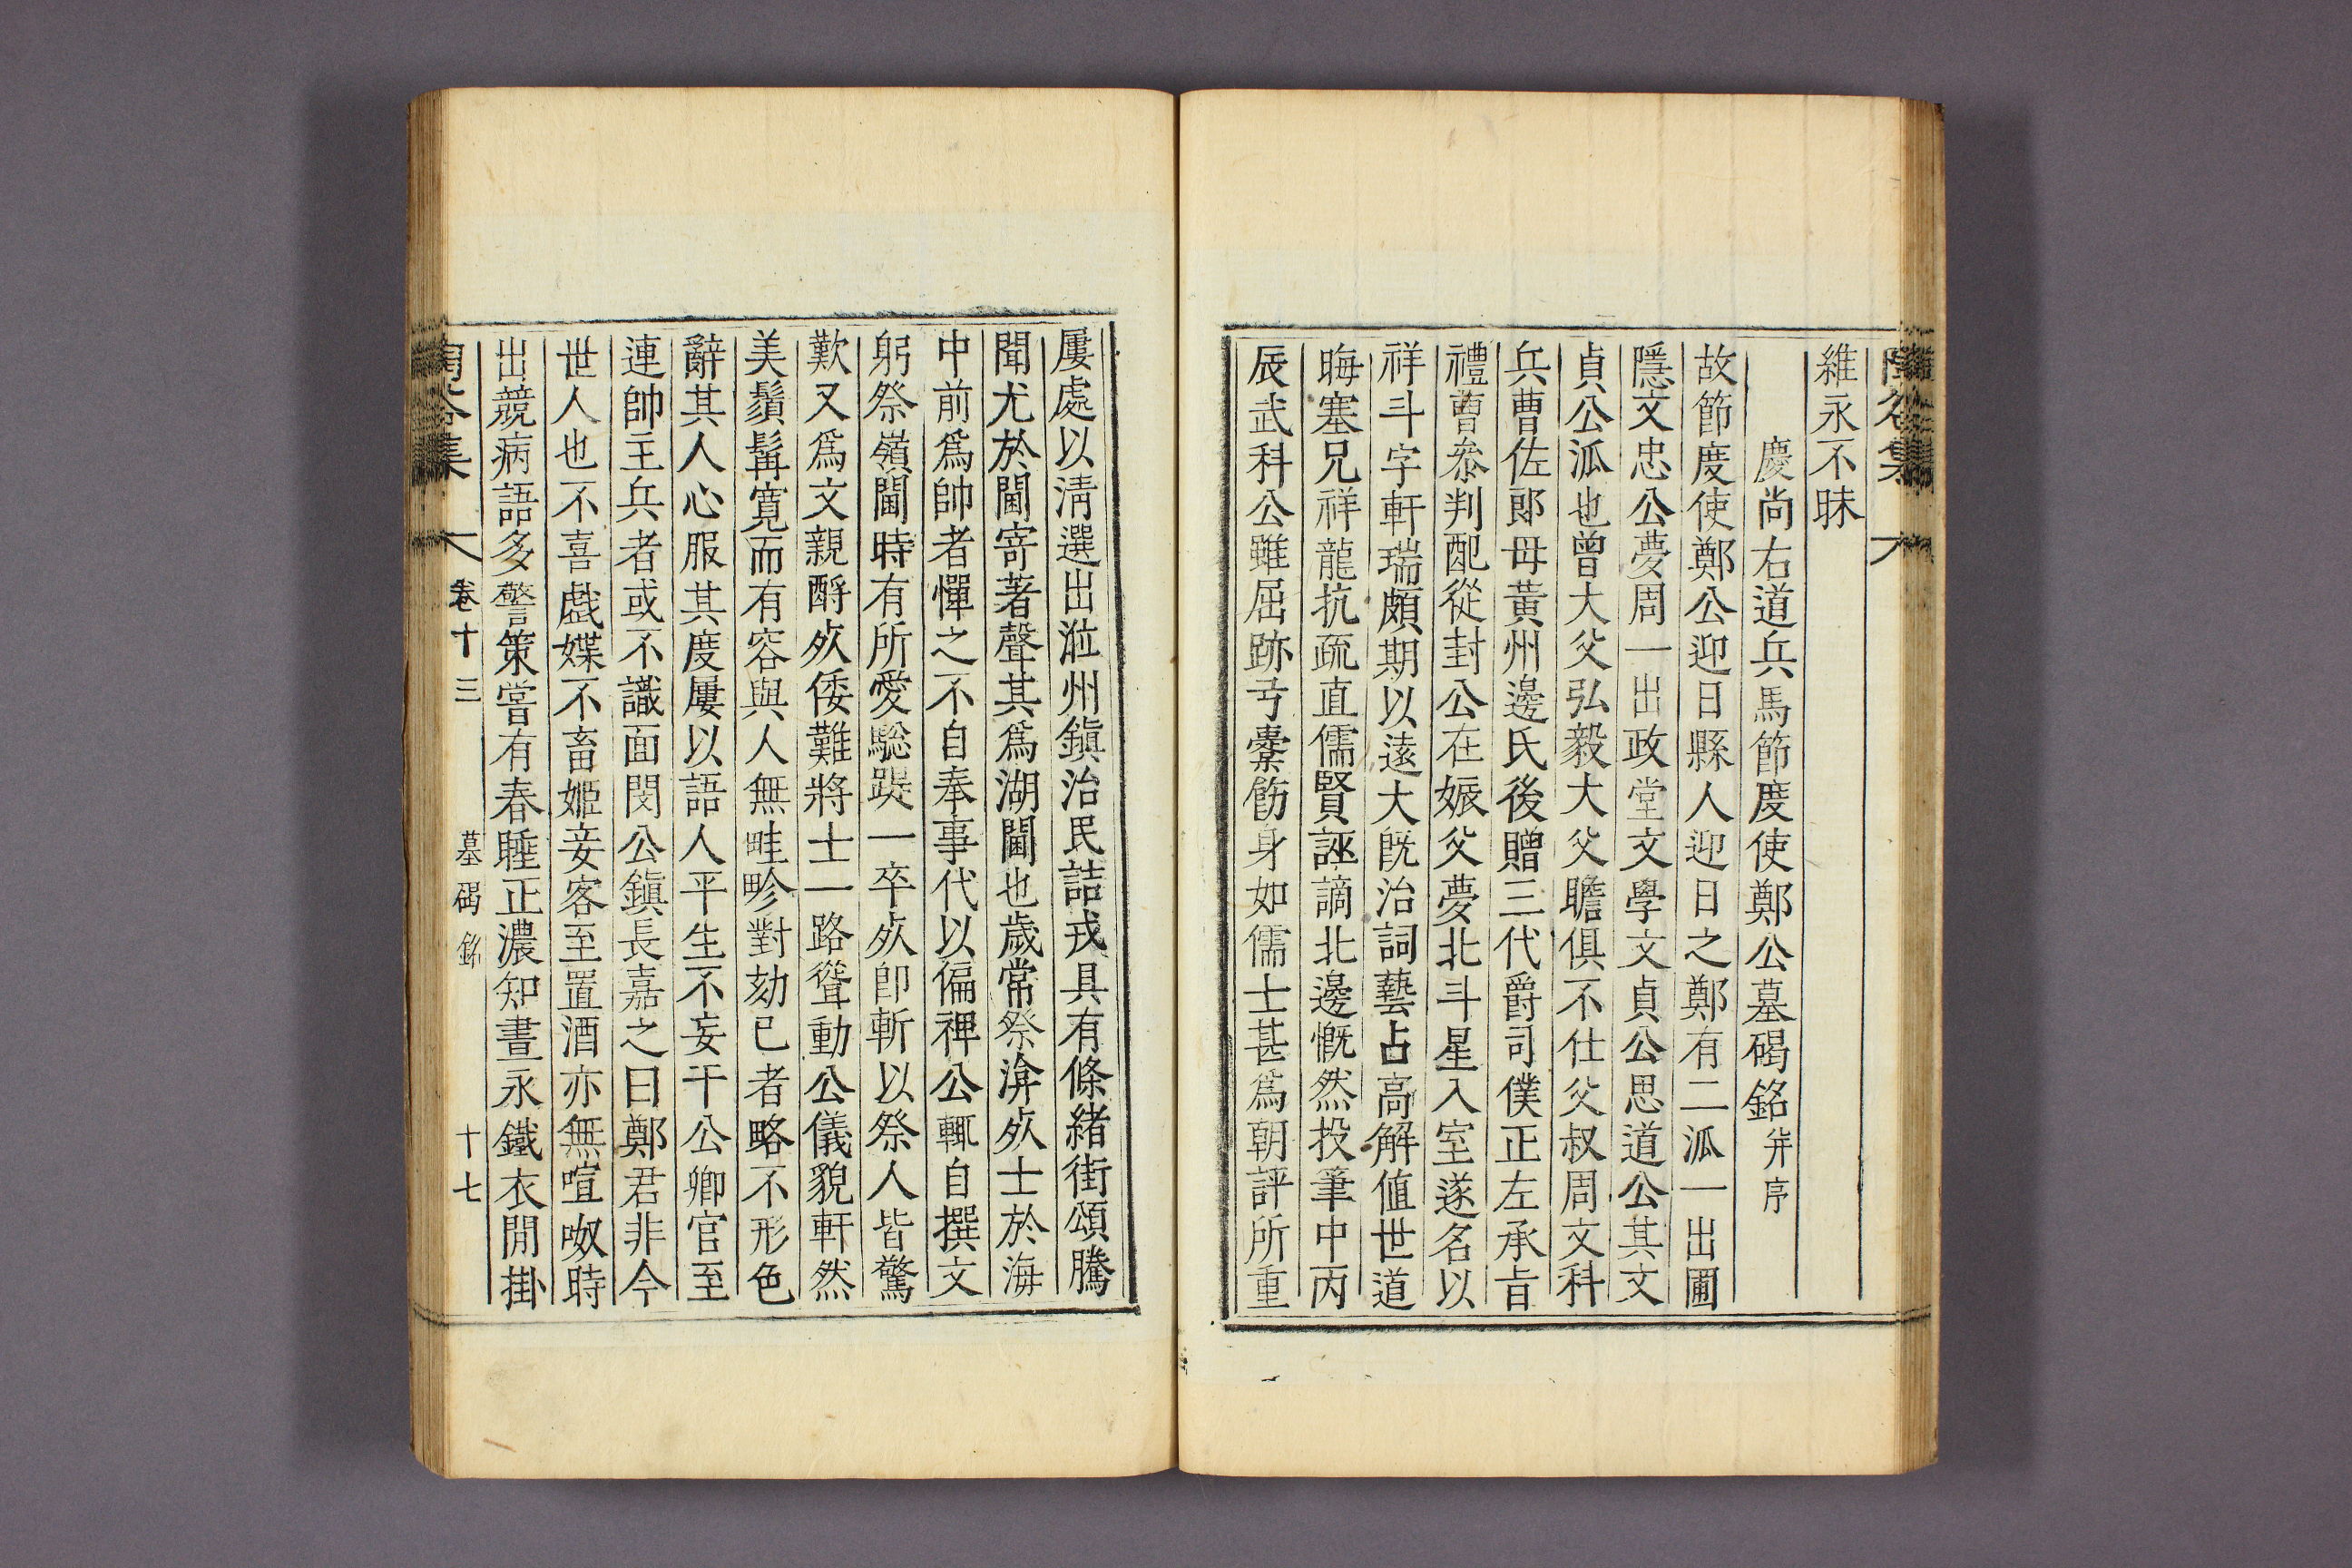 維永不昧
慶尚右道兵馬節度使鄭公墓碣銘 幷序
故節度使鄭公迎日縣人迎日之鄭有二派一出圃
隱文忠公夢周一出政堂文學文貞公思道公其文
貞公派也曾大父弘毅大父瞻俱不仕父叔周文科
兵曹佐郞母黃州邊氏後贈三代爵司僕正左承旨
禮曹叅判配從封公在娠父夢北斗星入室遂名以
祥斗字軒瑞頗期以遠大旣治詞藝占高解値世道
晦塞兄祥龍抗疏直儒賢誣謫北邊慨然投筆中丙
辰武科公雖屈跡弓櫜飭身如儒士甚爲朝評所重
屢處以淸選出涖州鎭治民詰戎具有條緖街頌騰
聞尤於閫寄著聲其爲湖閫也歲常祭渰死士於海
中前爲帥者憚之不自奉事代以偏裨公輒自撰文
躬祭嶺閫時有所愛驄踶一卒死卽斬以祭人皆驚
歎又爲文親酹死倭難將士一路聳動公儀貌軒然
美鬚髯寬而有容與人無畦畛對劾已者略不形色
辭其人心服其度屢以語人平生不妄干公卿官至
連帥主兵者或不識面閔公鎭長嘉之曰鄭君非今
世人也不喜戱媟不畜姬妾客至置酒亦無喧呶時
出競病語多警策嘗有春睡正濃知晝永鐵衣閒掛
卷十三
墓碣銘
十七